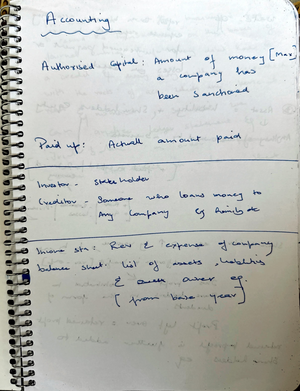 Accounting
Authorised Capital: Amount of money [Max]
a company has
been sanctioned
Paid up: Actual amount paid
Investor - Stakeholder
Creditor - Someone who loans money to
any company Eg
Income sta: Rev & expense of company
balance sheet: list of assets, liabilities
& owner eq.
(from base year)